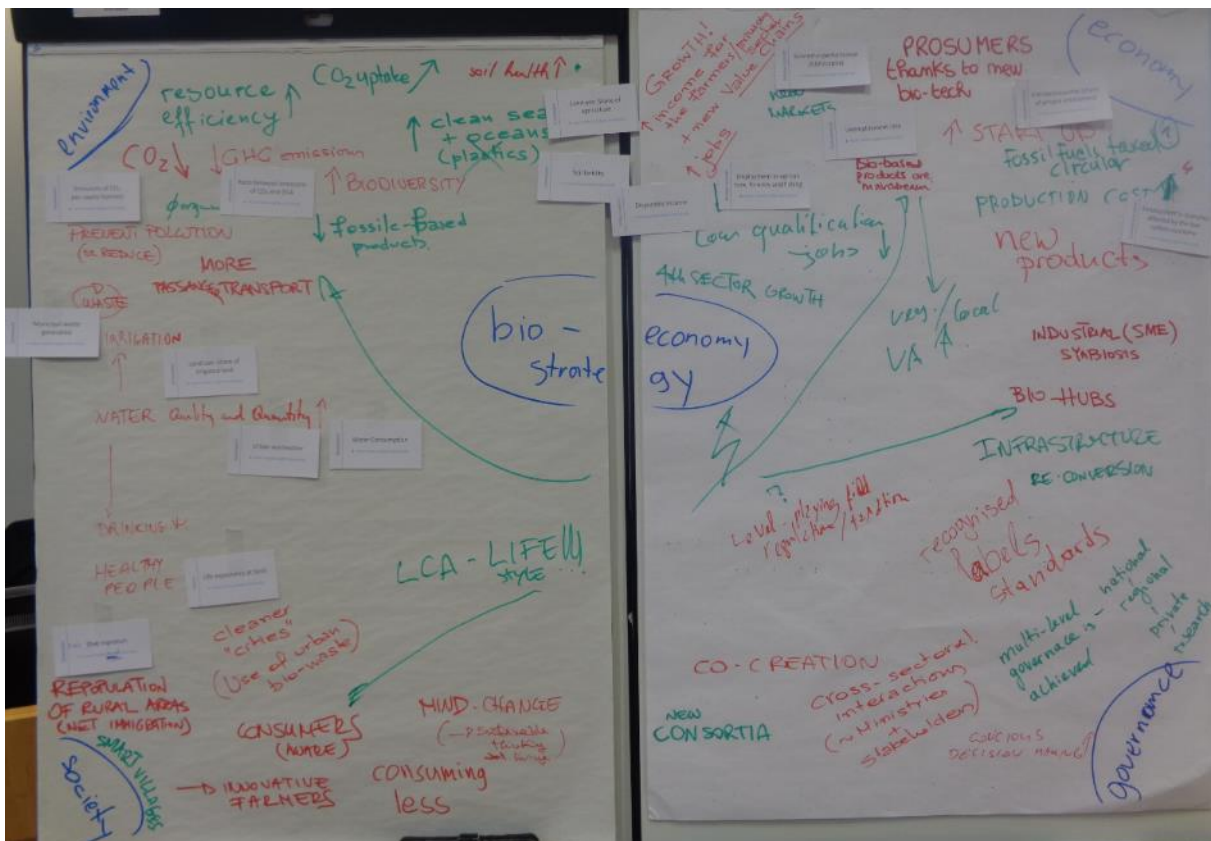 environment
resource
efficiency ↑
CO2 uptake ↑
soil health ↑
CO2 ↓
↓ GHG emissions
↑ clean sea
+ oceans
(plastics)
↑ BIODIVERSITY
PREVENT POLLUTION
(OR REDUCE)
↓ fossile-based
products.
MORE
TRANSPORT
WASTE
IRRIGATION
↑
WATER Quality and Quantity ↑
Water Consumption
DRINKING W.
HEALTHY
PEOPLE
Life expectancy at birth
LCA - LIFE!!!
STYLE
cleaner
"cities"
(Use of urban
bio-waste)
REPOPULATION
OF RURAL AREAS
(NET IMMIGRATION)
SMART VILLAGES
society
CONSUMERS
(AWARE)
→ INNOVATIVE
FARMERS
MIND-CHANGE
consuming
less
bio-
strate
economy
gy
GROWTH!
↑ income for
the farmers/primary
sector
+ new Value Chains
↑ jobs
MARKETS
PROSUMERS
thanks to new
bio-tech
economy
↑ START UP
fossil fuels taxed
circular
Bio-based
products are
mainstream
PRODUCTION COST
new
products
Low qualification
jobs ↓
4th SECTOR GROWTH
very/local
VA ↑
INDUSTRIAL (SME)
SYMBIOSIS
BIO-HUBS
INFRASTRUCTURE
RE-CONVERSION
?
Level-playing field
regulation/taxation
recognised
labels
standards
CO-CREATION
cross-sectoral
interactions
(~Ministries
+
stakeholders)
multi-level
governace is
achieved
- national
regional
private
research
NEW
CONSORTIA
COUCIOUS
DECISION MAKING ↑
governance